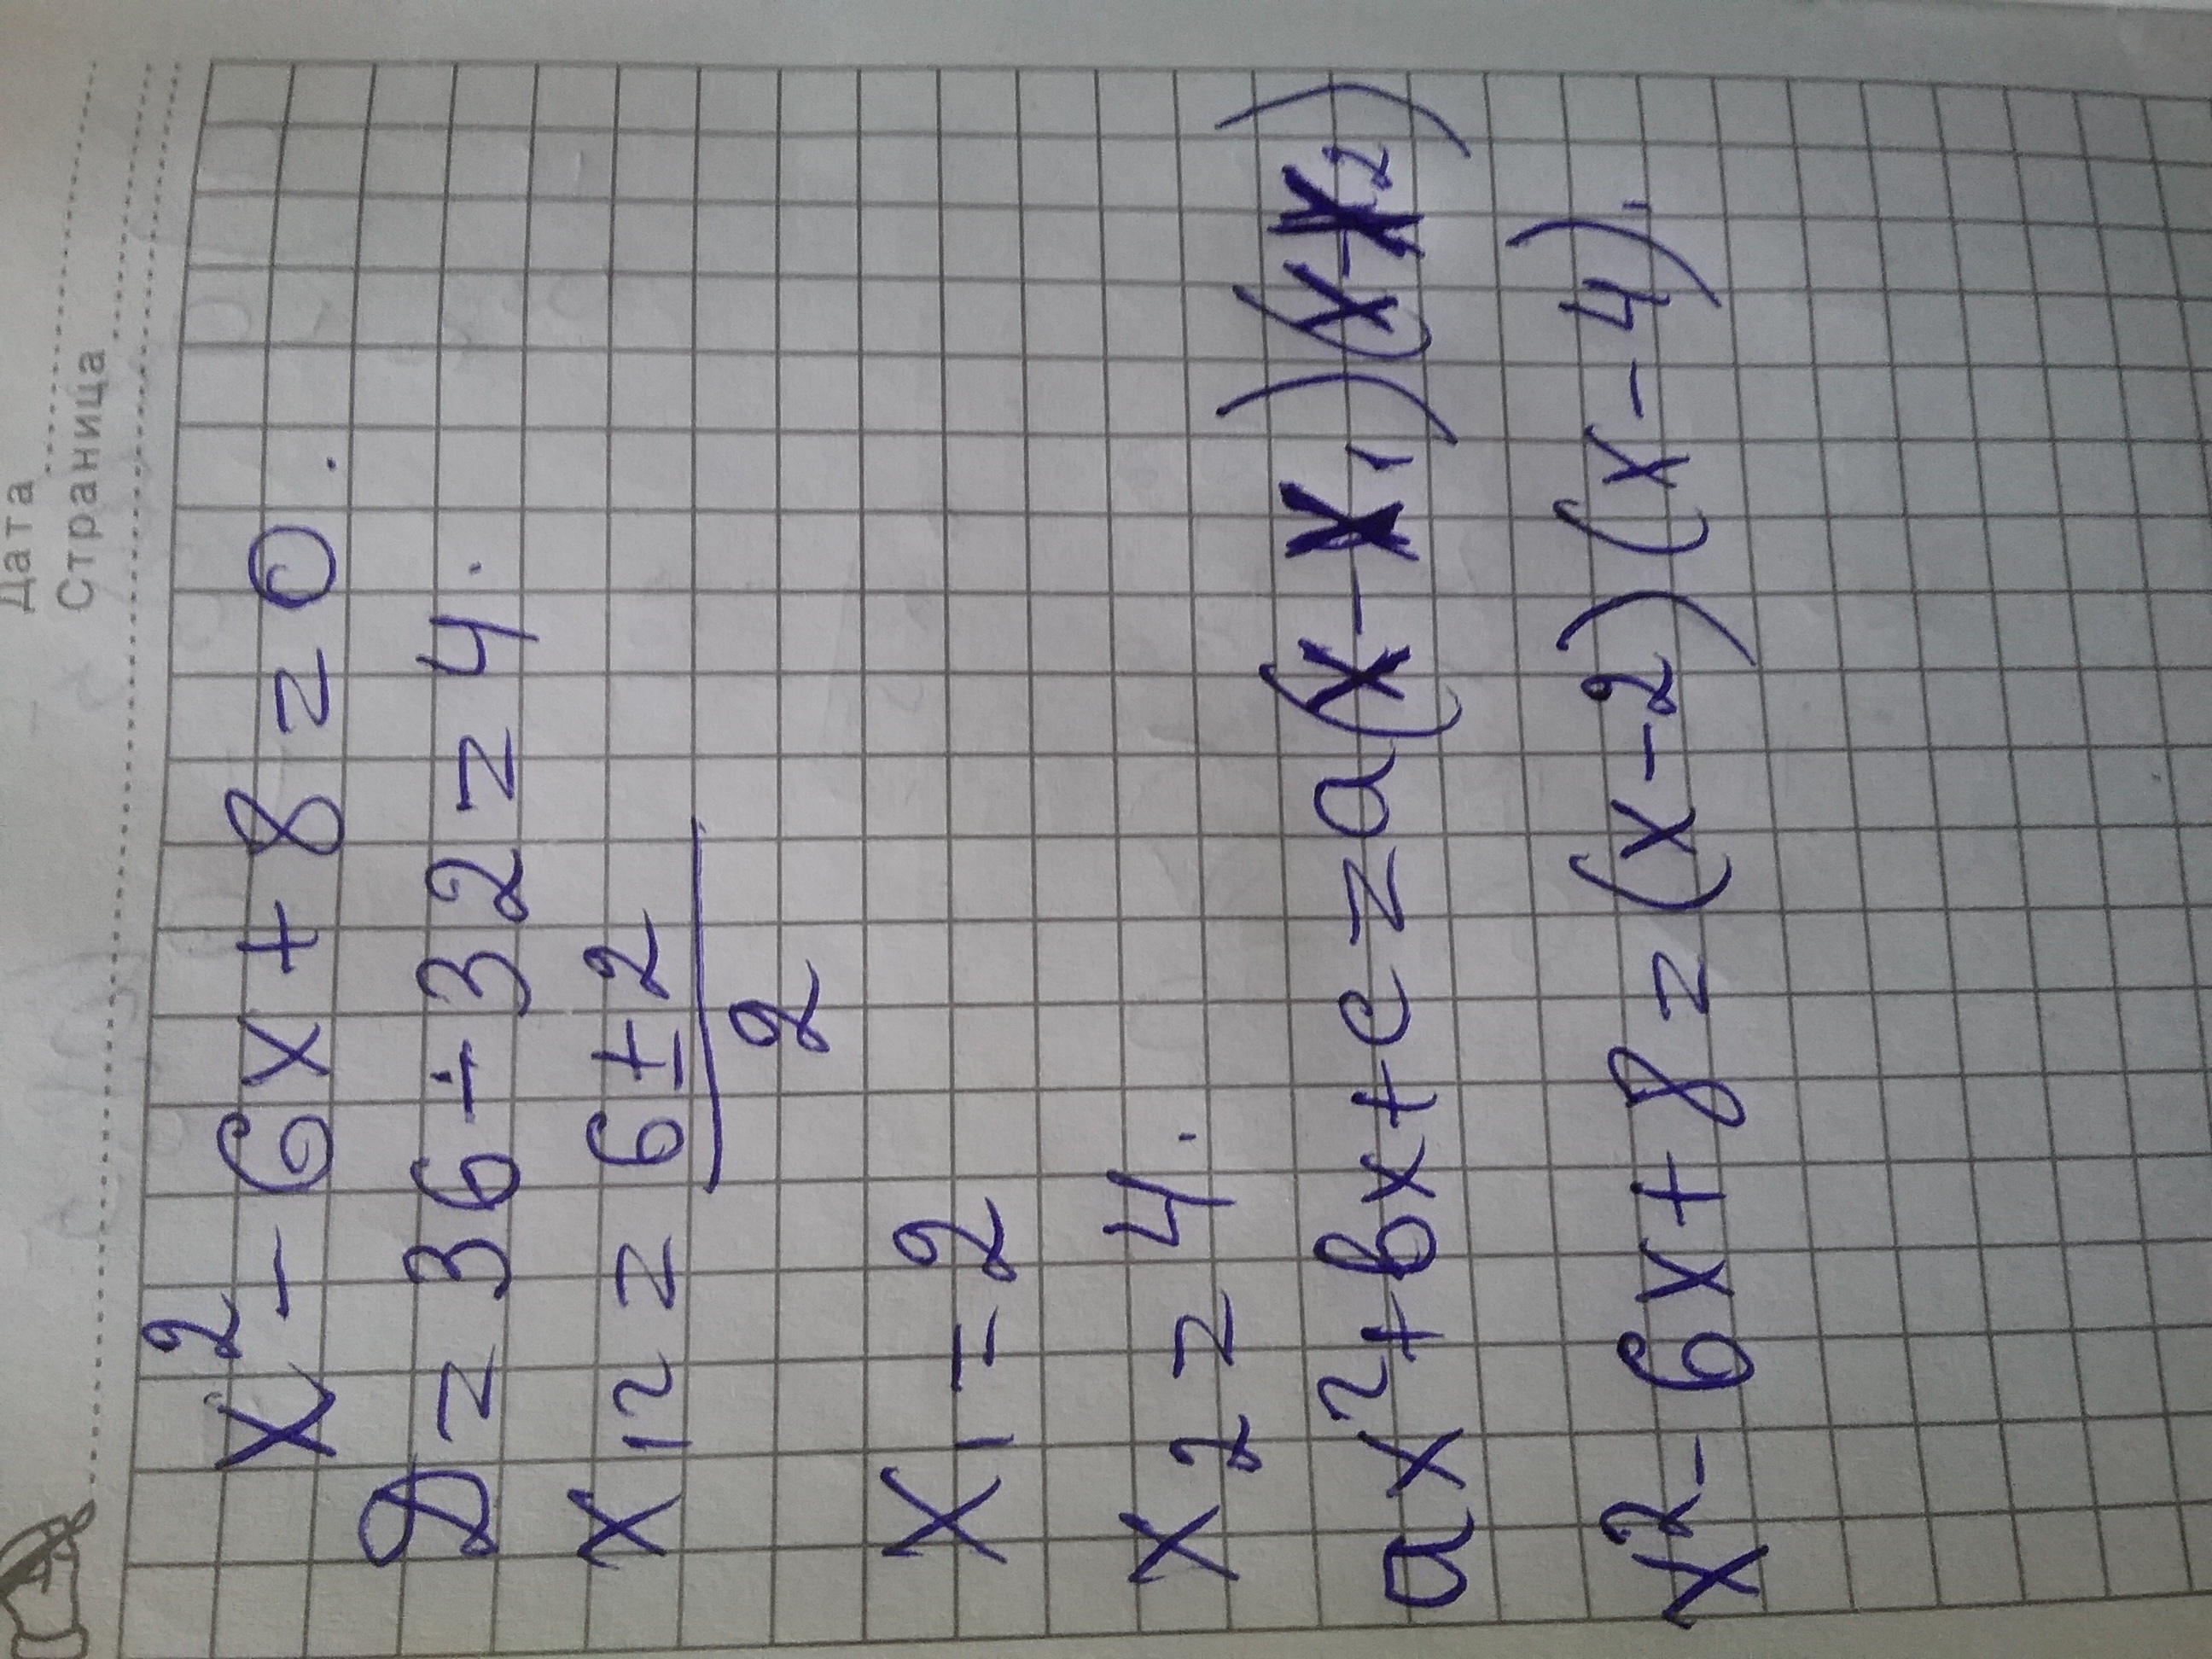 Дата
Страница
x² - 6x + 8 = 0.
D = 36 - 32 = 4.
x₁₂ = 6 ± 2
2
x₁ = 2
x₂ = 4.
ax² + bx + c = a(x - x₁)(x - x₂)
x² - 6x + 8 = (x - 2)(x - 4).